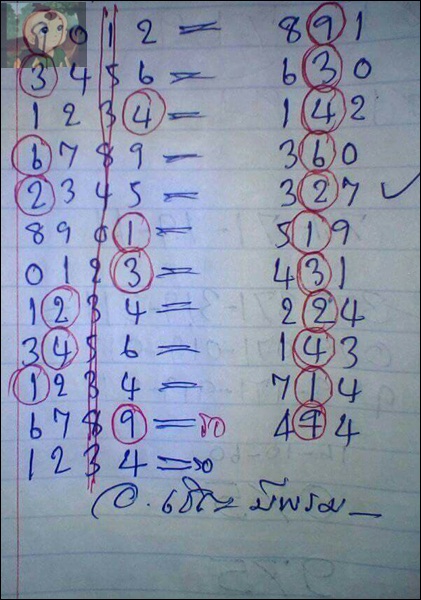 9 0 1 2 = 8 9 1
3 4 5 6 = 6 3 0
1 2 3 4 = 1 4 2
6 7 8 9 = 3 6 0
2 3 4 5 = 3 2 7 ✓
8 9 0 1 = 5 1 9
0 1 2 3 = 4 3 1
1 2 3 4 = 2 2 4
3 4 5 6 = 1 4 3
1 2 3 4 = 7 1 4
6 7 8 9 = 50 4 9 4
1 2 3 4 = 50
อ. มีพรม